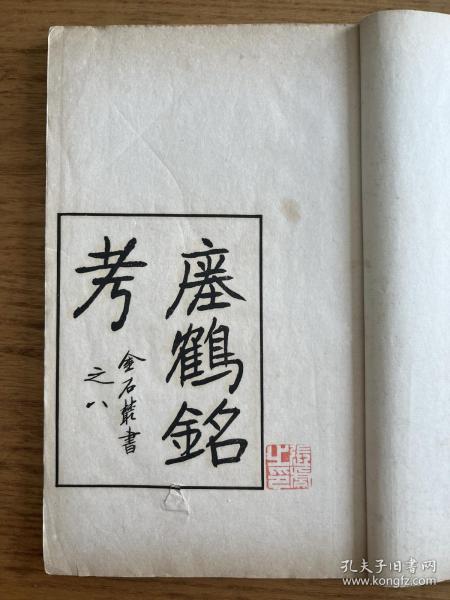 瘞鶴銘
考
金石叢書
之八
孔夫子旧书网
www.kongfz.com